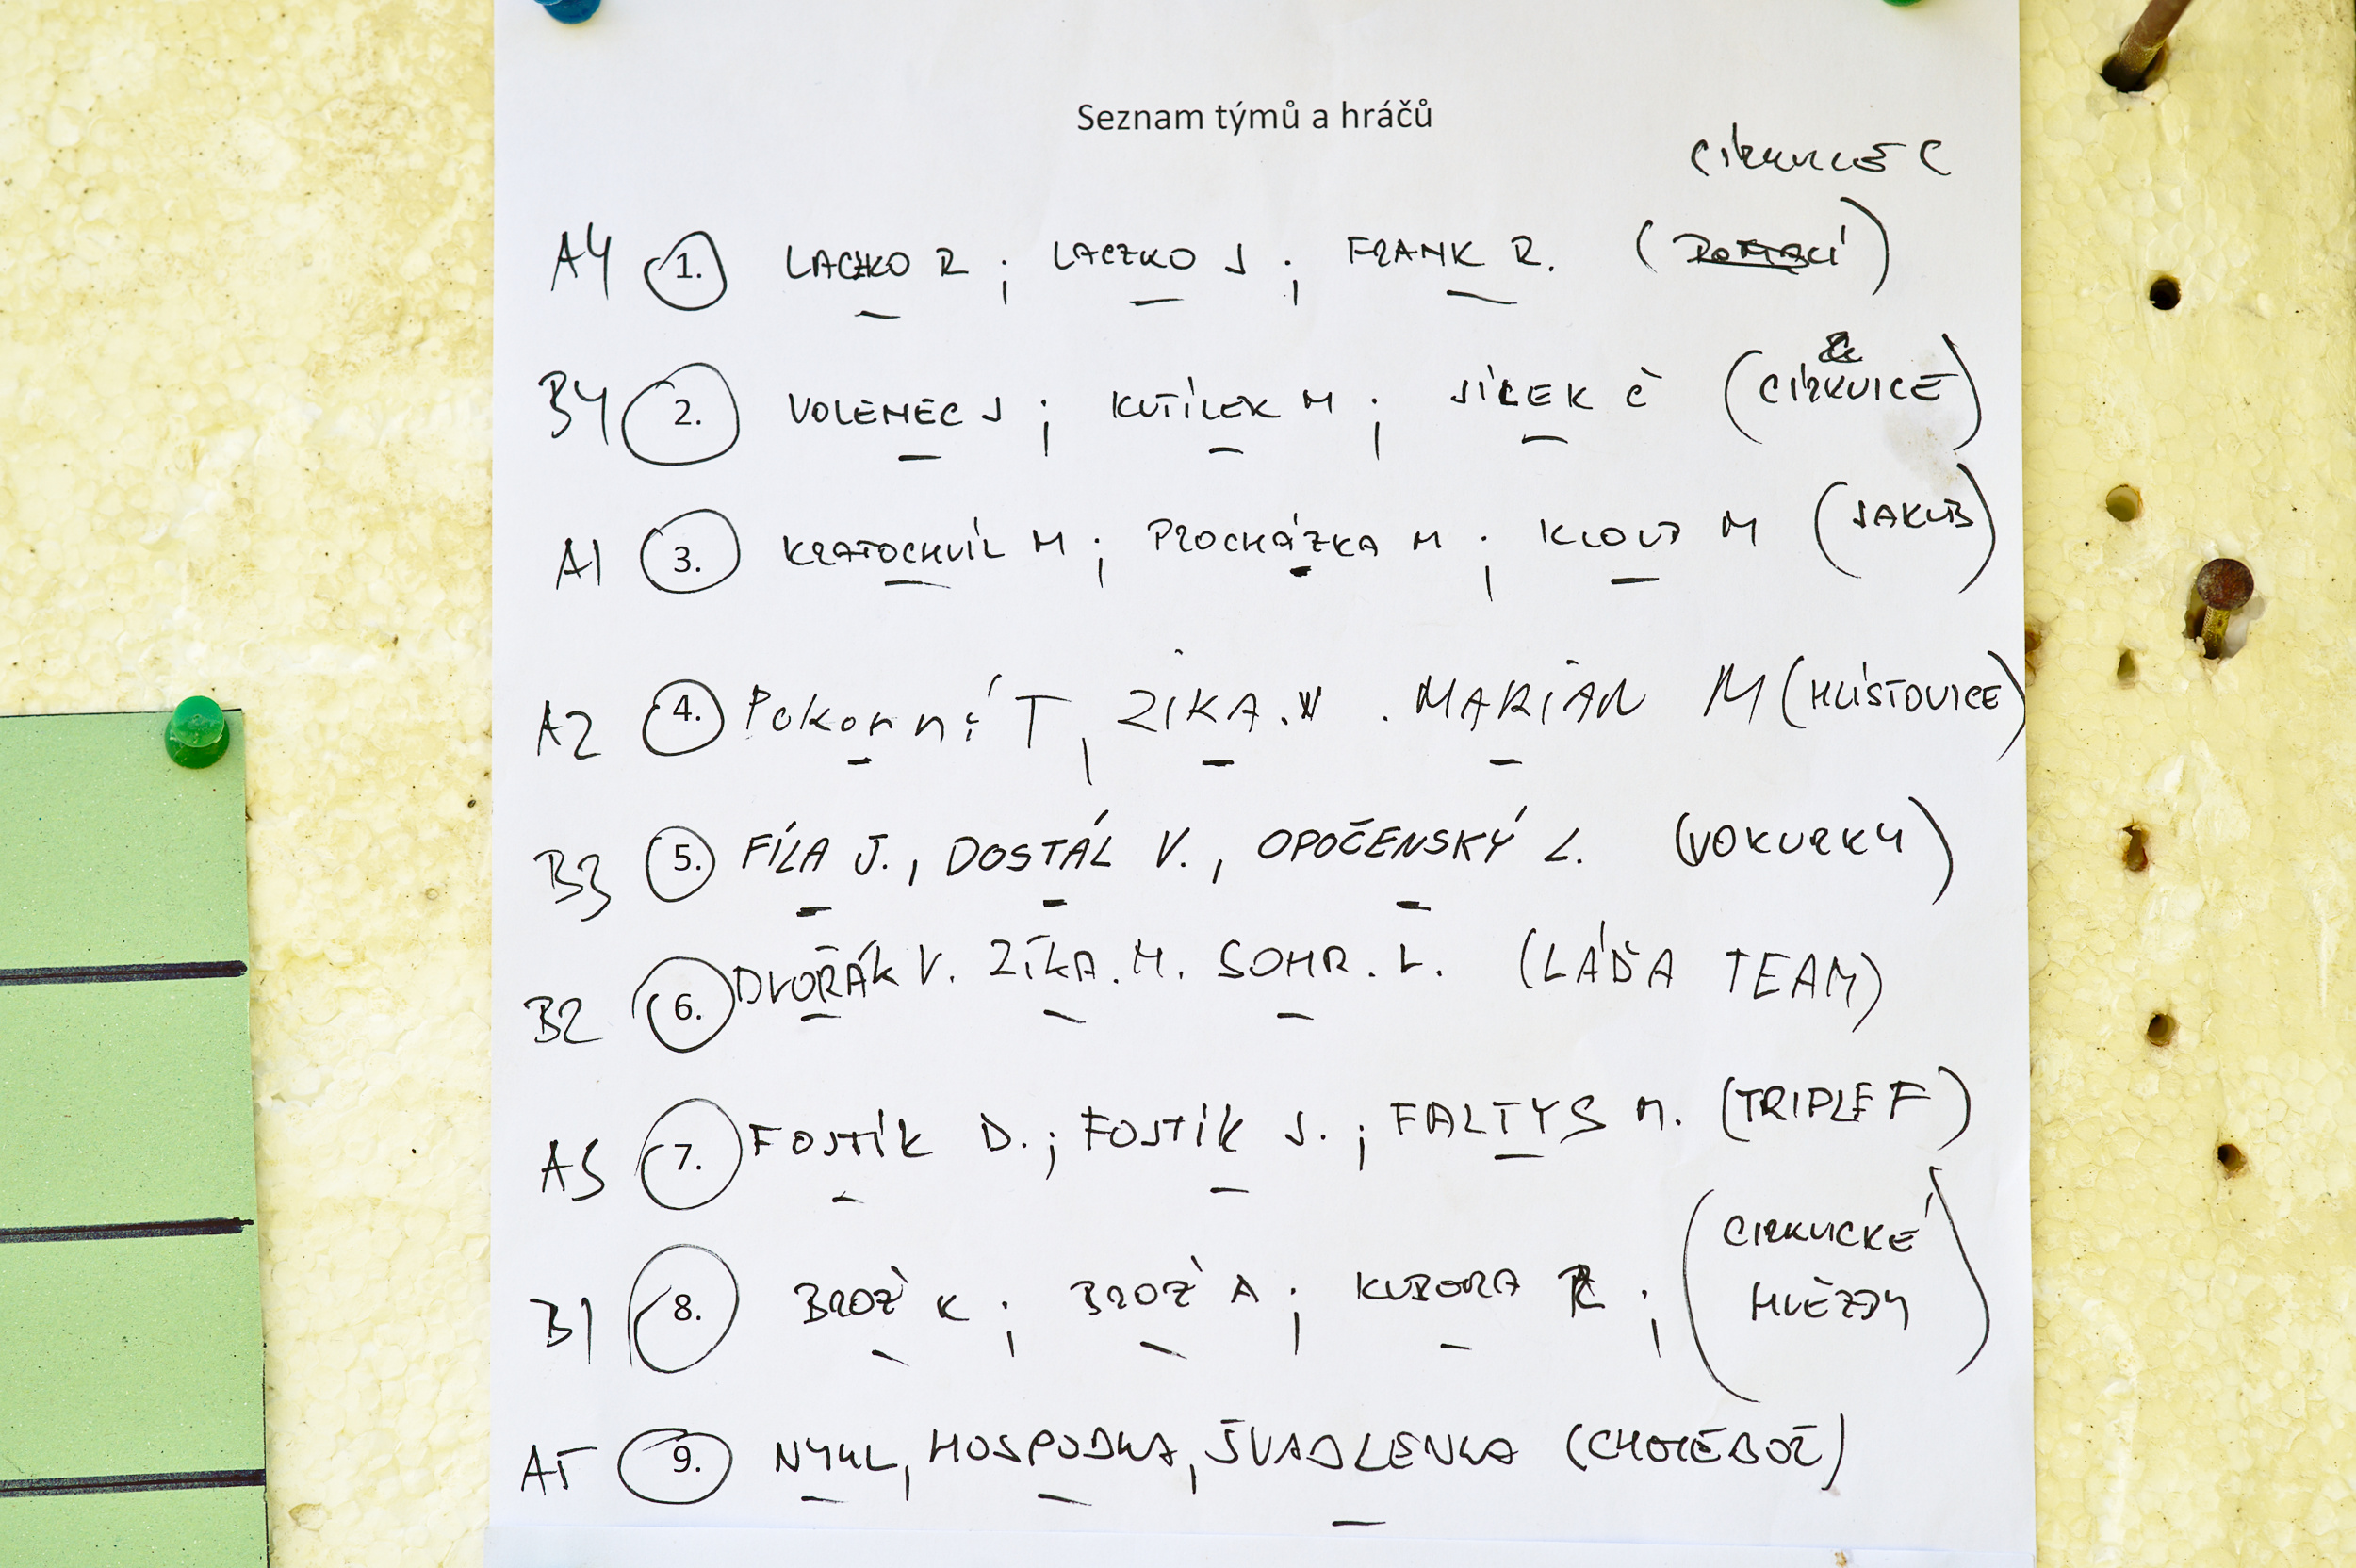 Seznam týmů a hráčů
CÍRKVICE C
A4 1. LACZKO R ; LACZKO J ; FRANK R. (DOMÁCÍ)
B4 2. VOLENEC J ; KUTÍLEK M ; JÍLEK Č (CÍRKVICE)
A1 3. KRATOCHVÍL M ; PROCHÁZKA M ; KLOUD M (JAKUB)
A2 4. Pokorní T, ZIKA. . MARIÁN M (HLÍSTOVICE)
B3 5. FÍLA J., DOSTÁL V., OPOČENSKÝ L. (VOKURKY)
B2 6. DVOŘÁK V. ZÍKA. M. SOHR. L. (LÁĎA TEAM)
A3 7. FOSTÍK D.; FOSTÍK J.; FALTYS M. (TRIPLE F)
B1 8. BROŽ K ; BROŽ A ; KUBORA R ; (CIRKVICKÉ
HVĚZDY)
A5 9. NYKL, HOSPODKA, ŠVADLENKA (CHOTĚBOŘ)